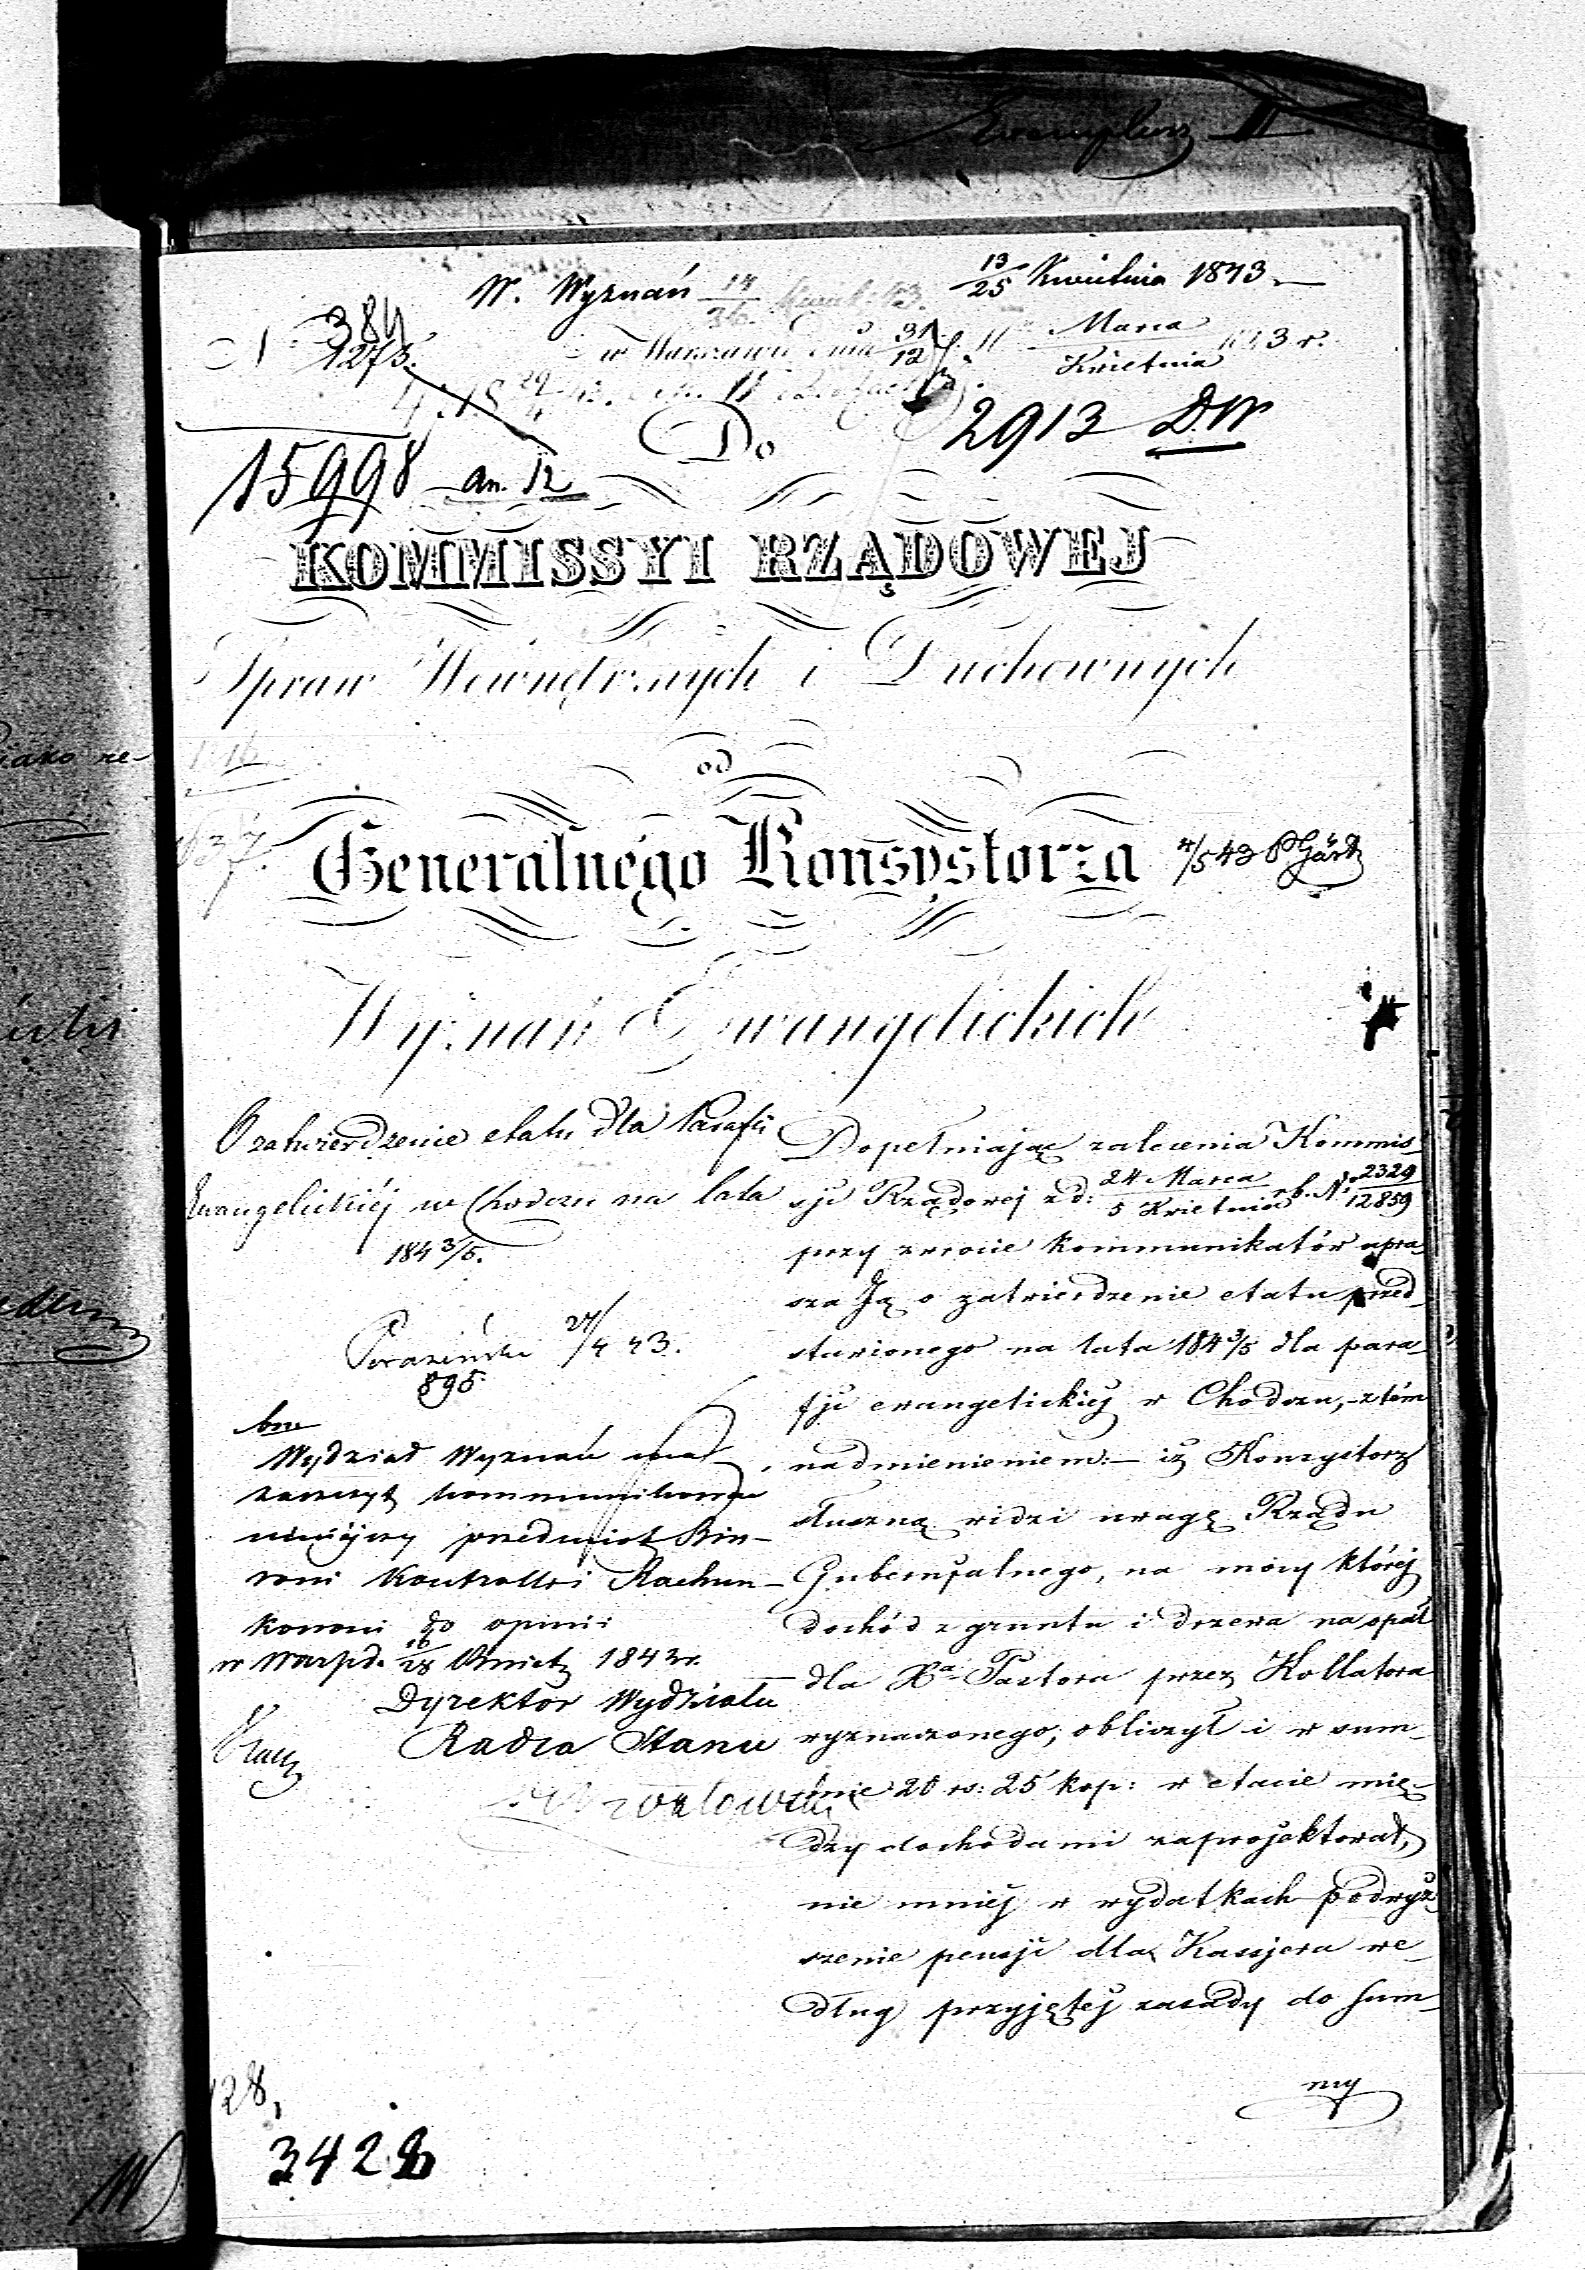 Exemplarz II
W. Wyznań 14/26 13/25 Kwietnia 1843
N 384
1273.
w Warszawie dnia 31/12 Marca Kwietnia 1843 r.
Do
2913 D.W
15998 an. 12
KOMMISSYI RZĄDOWEJ
Spraw Wewnętrznych i Duchownych
od
Generalnego Konsystorza
4/5 43
Wyznań Ewangelickich
O zatwierdzenie etatu dla Parafii
Ewangelickiéj w Chodczu na lata
184 3/5.
27/4 43.
895
Wydział Wyznań ma
zaszczyt kommunikować
niniejszy przedmiot Biu-
rowi Kontrolli Rachun-
kowéj do opinii
w Warsz. d. 16/28 Kwiet. 1843 r.
Dyrektor Wydziału
Radca Stanu
Dopełniając zalecenia Kommis-
sji Rządowej z d: 24 Marca / 5 Kwietnia r.b. N. 2329/12859
przy zwrocie kommunikatów upra-
sza Ją o zatwierdzenie etatu przed-
stawionego na lata 184 3/5 dla para-
fji ewangelickiej w Chodczu, z tém
nadmienieniem: iż Konsystorz
słuszną widzi uwagę Rządu
Gubernjalnego, na mocy której
dochód z gruntu i drzewa na opał
dla Xa Pastora przez Kollatora
wyznaczonego, obliczył i w sum-
mie 20 rs: 25 kop: w etacie mię-
dzy dochodami zaprojektował,
nie mniej w wydatkach podwyż-
szenie pensji dla Kassjera we-
dług przyjętej zasady do sum-
my
128,
3428